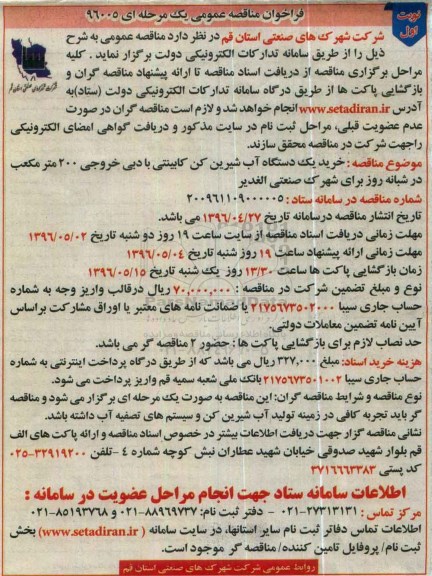 نوبت اول
فراخوان مناقصه عمومی یک مرحله ای ۹۶۰۰۵
شرکت شهرک های صنعتی استان قم در نظر دارد مناقصه عمومی به شرح
ذیل را از طریق سامانه تدارکات الکترونیکی دولت برگزار نماید . کلیه
مراحل برگزاری مناقصه از دریافت اسناد مناقصه تا ارائه پیشنهاد مناقصه گران و
بازگشایی پاکت ها از طریق درگاه سامانه تدارکات الکترونیکی دولت (ستاد)به
آدرس www.setadiran.ir انجام خواهد شد و لازم است مناقصه گران در صورت
عدم عضویت قبلی، مراحل ثبت نام در سایت مذکور و دریافت گواهی امضای الکترونیکی
راجهت شرکت در مناقصه محقق سازند.
موضوع مناقصه : خرید یک دستگاه آب شیرین کن کابینتی با دبی خروجی ۲۰۰ متر مکعب
در شبانه روز برای شهرک صنعتی الغدیر
شماره مناقصه در سامانه ستاد : ۲۰۰۹۶۱۱۰۹۰۰۰۰۰۵
تاریخ انتشار مناقصه درسامانه تاریخ ۱۳۹۶/۰۴/۲۷ می باشد.
مهلت زمانی دریافت اسناد مناقصه از سایت ساعت ۱۹ روز دو شنبه تاریخ ۱۳۹۶/۰۵/۰۲
مهلت زمانی ارائه پیشنهاد ساعت ۱۹ روز شنبه تاریخ ۱۳۹۶/۰۵/۰۴
زمان بازگشایی پاکت ها ساعت ۱۳/۳۰ روز یک شنبه تاریخ ۱۳۹۶/۰۵/۱۵
نوع و مبلغ تضمین شرکت در مناقصه : ۷۰,۰۰۰,۰۰۰ ریال درقالب واریز وجه به شماره
حساب جاری سیبا ۲۱۷۵۶۷۳۵۰۲۰۰۰ یا ضمانت نامه های معتبر یا اوراق مشارکت براساس
آیین نامه تضمین معاملات دولتی.
حد نصاب لازم برای بازگشایی پاکت ها : حضور ۲ مناقصه گر می باشد.
هزینه خرید اسناد: مبلغ ۳۲۷,۰۰۰ ریال می باشد که از طریق درگاه پرداخت اینترنتی به شماره
حساب جاری سیبا ۲۱۷۵۶۷۳۵۰۱۰۰۲ بانک ملی شعبه سمیه قم واریز پرداخت می شود.
نوع مناقصه و شرایط مناقصه گران: این مناقصه به صورت یک مرحله ای برگزار می شود و مناقصه
گر باید تجربه کافی در زمینه تولید آب شیرین کن و سیستم های تصفیه آب داشته باشد.
نشانی مناقصه گزار جهت دریافت اطلاعات بیشتر در خصوص اسناد مناقصه و ارائه پاکت های الف
قم بلوار شهید صدوقی خیابان شهید عطاران نبش کوچه شماره ۴ -تلفن ۳۲۹۱۹۲۰۰-۰۲۵
کد پستی ۳۷۱۶۶۶۳۳۸۳
اطلاعات سامانه ستاد جهت انجام مراحل عضویت در سامانه :
مرکز تماس : ۲۷۳۱۳۱۳۱-۰۲۱ - دفتر ثبت نام: ۸۸۹۶۹۷۳۷-۰۲۱ و ۸۵۱۹۳۷۶۸-۰۲۱
اطلاعات تماس دفاتر ثبت نام سایر استانها، در سایت سامانه ( www.setadiran.ir) بخش
ثبت نام/ پروفایل تامین کننده/ مناقصه گر موجود است.
روابط عمومی شرکت شهرک های صنعتی استان قم